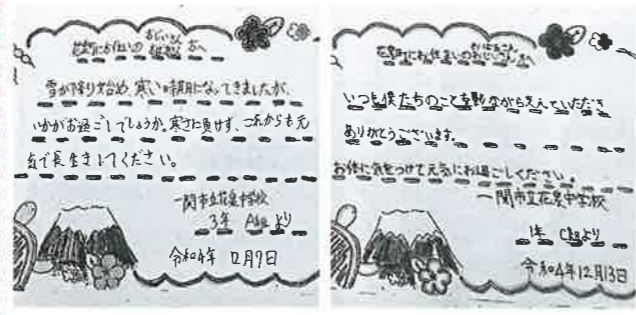 花泉町にお住いの
方へ
雪が降り始め、寒い時期になってきましたが、
いかがお過ごしでしょうか。寒さに負けず、これからも元
気で長生きしてください。
一関市立花泉中学校
3年 より
令和4年 12月9日
花泉町にお住まいのおばあさん
おじいさん方へ
いつも僕たちのことを影ながら支えていただき
ありがとうございます。
お体に気をつけて元気にお過ごしください。
一関市立花泉中学校
1年 より
令和4年12月13日